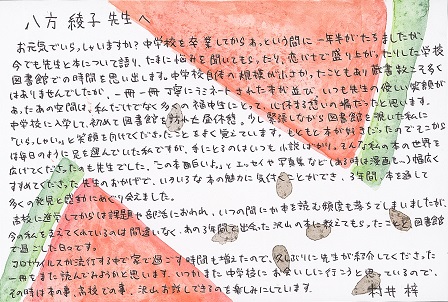 八方 綾子 先生へ
お元気でいらっしゃいますか？中学校を卒業してからあっという間に一年半がたちましたが、
今でも先生と本について語り、たまに悩みを聞いてもらったり、恋バナで盛り上がったりした学校
図書館での時間を思い出します。中学校自体の規模が小さかったこともあり蔵書数こそ多く
はありませんでしたが、一冊一冊丁寧にラミネートされた本が並び、いつも先生の優しい笑顔が
あったあの空間は、私だけでなく多くの福中生にとって、心休まる憩いの場だったと思います。
中学校に入学して、初めて図書館を訪れた昼休憩。少し緊張しながら図書館を覗いた私に
「いらっしゃい」と笑顔を向けてくださったことをよく覚えています。もともと本が好きだったのでそこから
は毎日のように足を運んでいた私ですが、手にとるのはいつも小説ばかり。そんな私の本の世界を
広げてくださったのも先生でした。「この本面白いよ。」とエッセイや写真集など（ある時は漫画も…）幅広く
すすめてくださった先生のおかげで、いろいろな本の魅力に気付くことができ、3年間、本を通して
多くの発見と感動にめぐり会えました。
高校に進学してからは課題や部活におわれ、いつの間にか本を読む頻度も落ちてしまいましたが、
今の私を支えてくれているのは間違いなく、あの3年間で出会った沢山の本に教えてもらったことと図書館
で過ごした日々です。
コロナウイルスが流行する中で家で過ごす時間も増えたので、久しぶりに先生が紹介してくださった
一冊をまた読んでみようかと思います。いつかまた中学校にお会いしに行こうと思っているので、
その時は本の事、高校での事、沢山お話しできるのを楽しみにしています。
梓